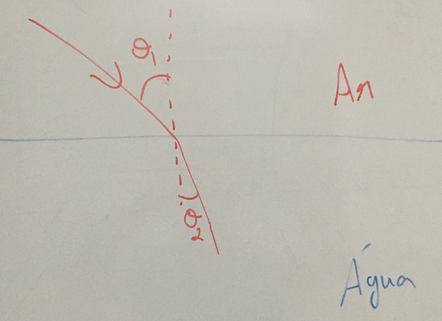 θ₁
Ar
θ₂
Água